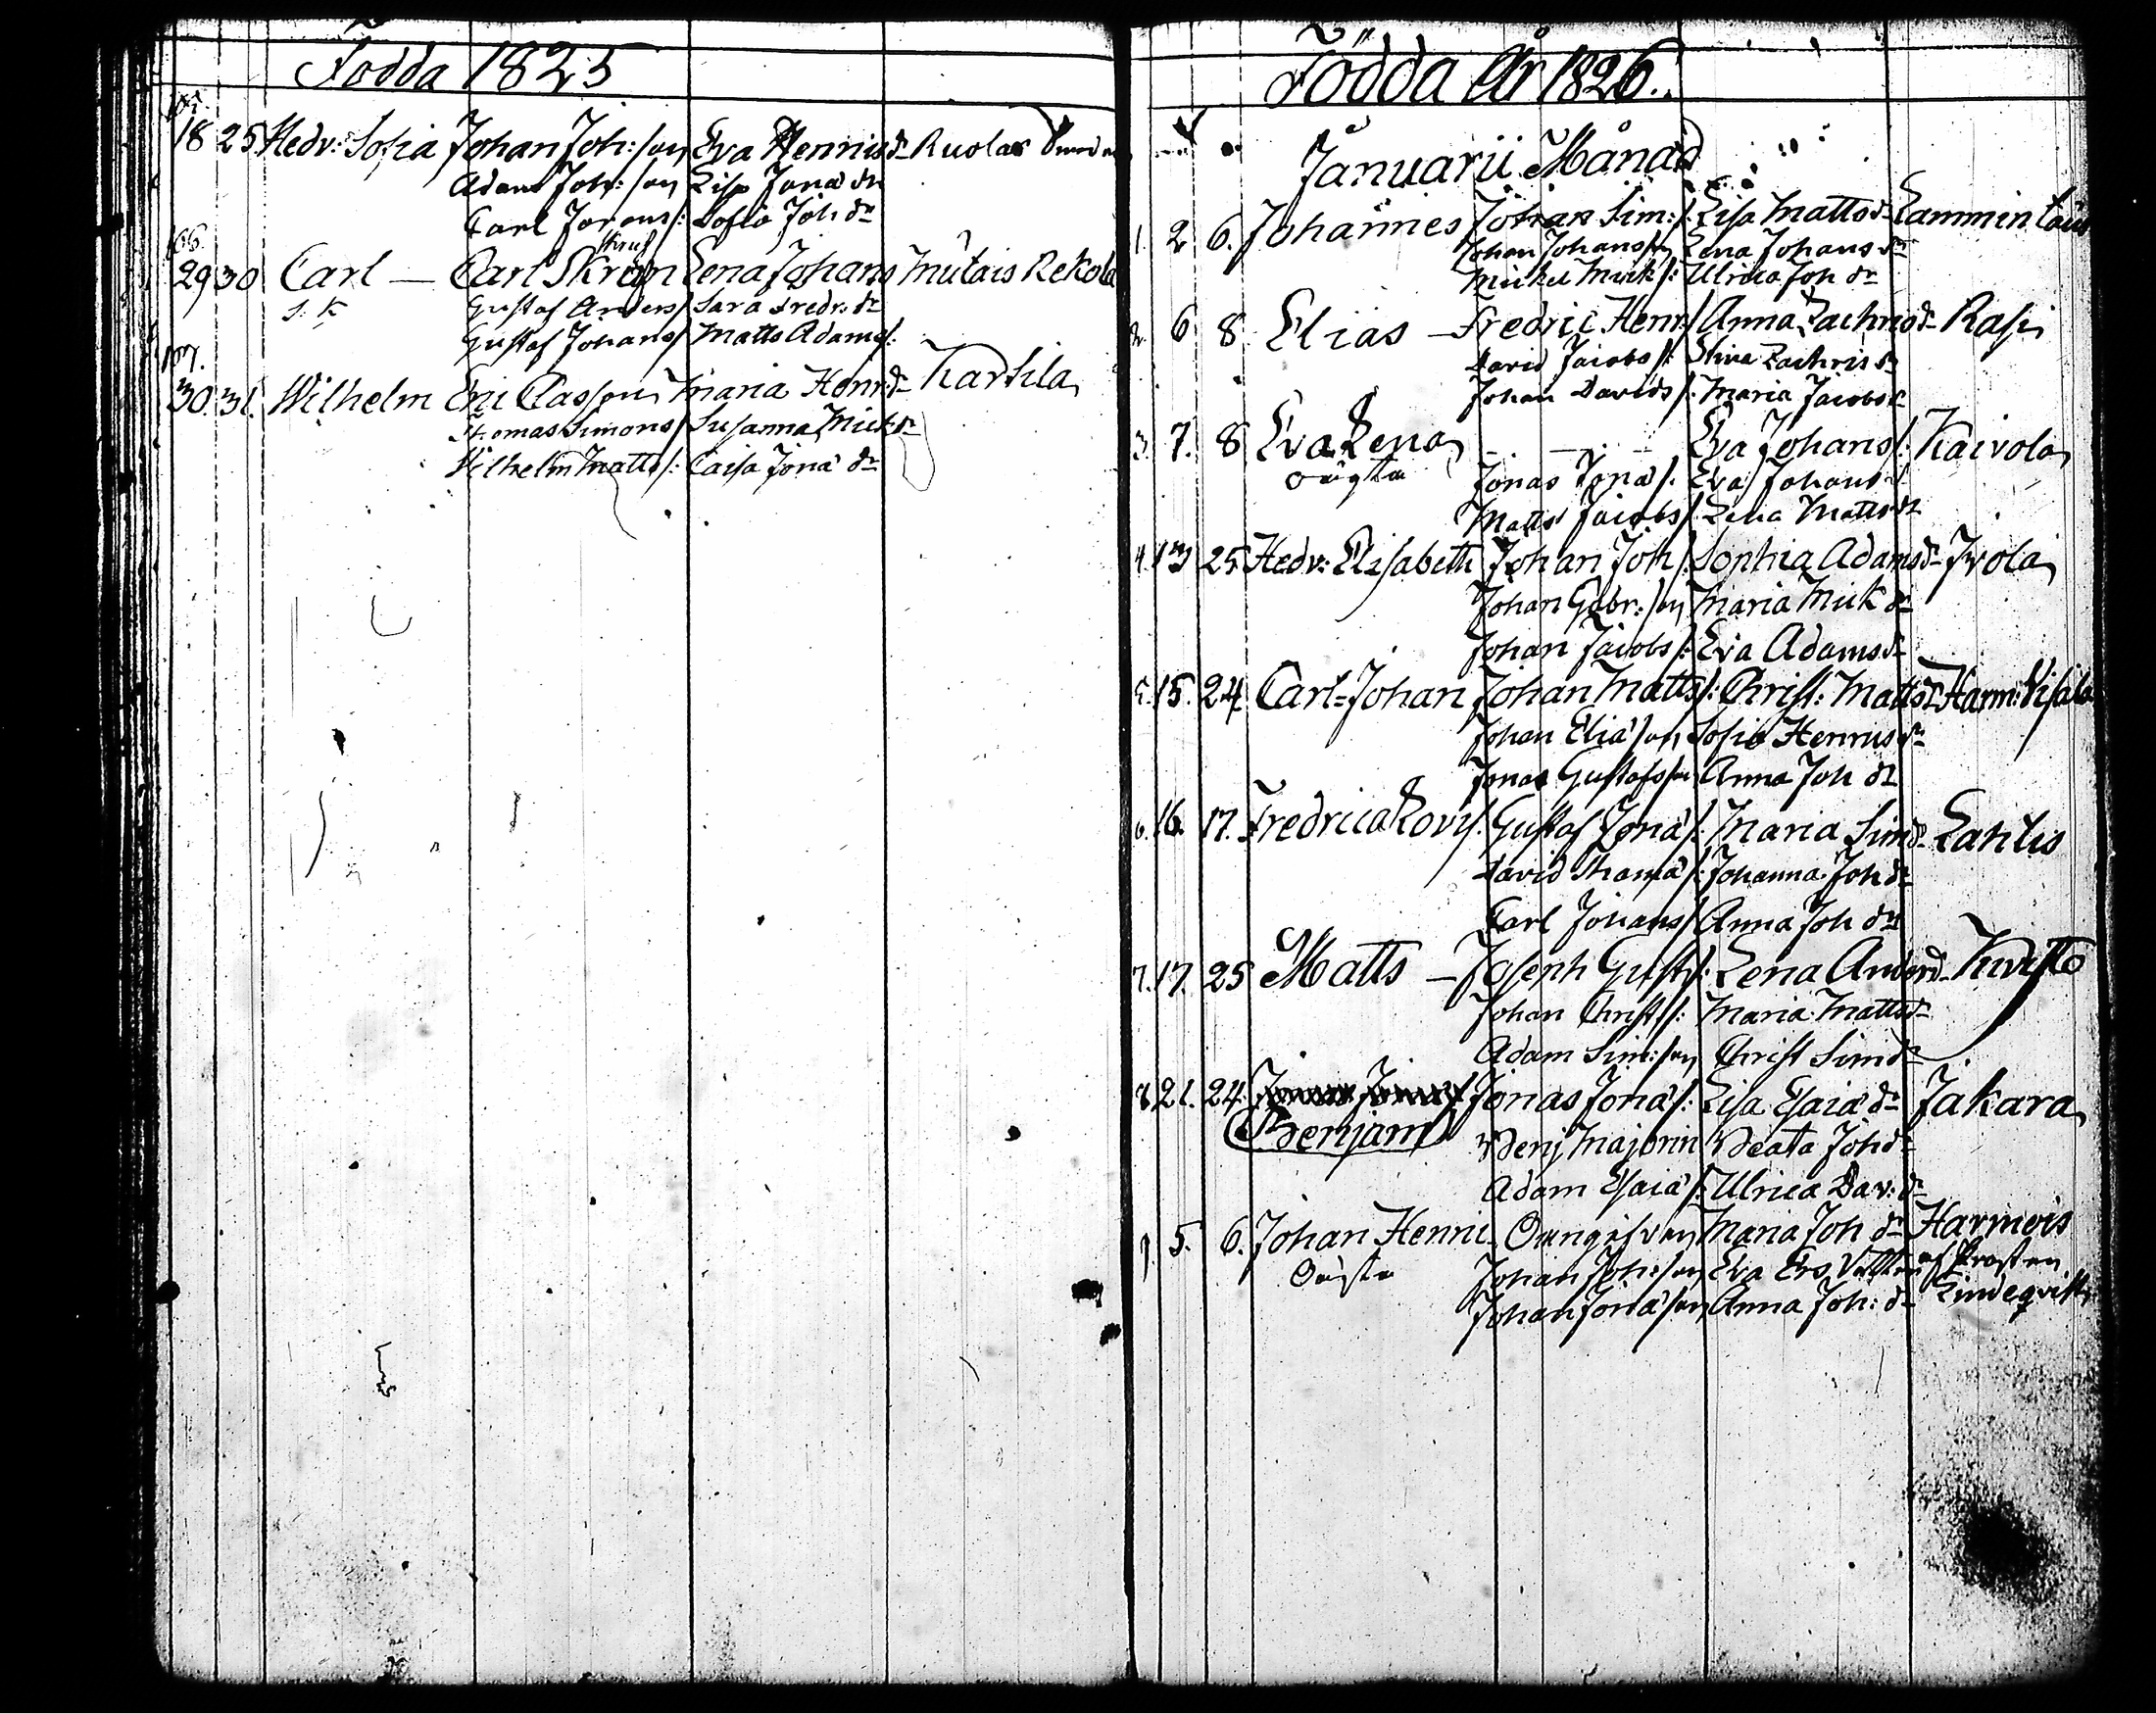 Födda 1825
18 25 Hedv: Sofia Johan Joh:son Eva Henricsdr Ruolax
Adam Joh:son Lisa Jona dr
Carl Joh dr
66.
29 30 Carl — Carl Lena Johans Mulais Rekola
Gustaf Anders/ Sara Fredr: dr
Gustaf Johans/ Matts Adams/:
30. 31. Wilhelm Eric Classon Maria Henr:dr Kartila
Thomas Simons/ Susanna Mick dr
Wilhelm Matts/: Caisa Jona dr
Födda År 1826.
Januarii Månad
1. 2 6. Johannes Johan Sim:/: Lisa Mattsdr Lammin
Johan Johans/on Lena Johans dr
Mickel Mick/: Ulrica Joh dr
2. 6 8 Elias — Fredric Henr:/ Anna Zachrisdr Rasi
David Jacobs/: Stina Zachris dr
Johan Davids/: Maria Jacobs dr
3. 7. 8 Eva Lena — — Eva Johans/: Kaivola
oägta Jonas Jona/: Eva Johans/:
Matts Jacobs/: Lena Matts dr
4. 13 25 Hedv: Elisabeth Johan Joh/: Sophia Adamsdr Ivola
Johan Gabr:son Maria Mick dr
Johan Jacobs/: Eva Adamsdr
5. 15. 24 Carl=Johan Johan Matts/: Christ: Mattsdr Harm:
Johan Elia'son Sofia Henricsdr
Jonas Gustafsson Anna Joh dr
6. 16. 17. Fredrica Lovis: Gustaf Jona/: Maria Simdr Lahtis
David Thoma/: Johanna Joh dr
Carl Johans/ Anna Joh dr
7. 17. 25 Matts — Joseph Gust/: Lena Andersdr Kvisto
Johan Christ/: Maria Mattsdr
Adam Sim:son Christ Simdr
8 21. 24 Jonas Jona/: Lisa Esaia dr Jakara
Benjam Benj Majorin Beata Johdr
Adam Esaia/: Ulrica Dav: dr
9. 5. 6. Johan Henric Oungifven Maria Joh dr Harmois
Oägta Johan Joh:son Eva Ers af Prosten
Johan Jona'son Anna Joh: dr Lindeqvist